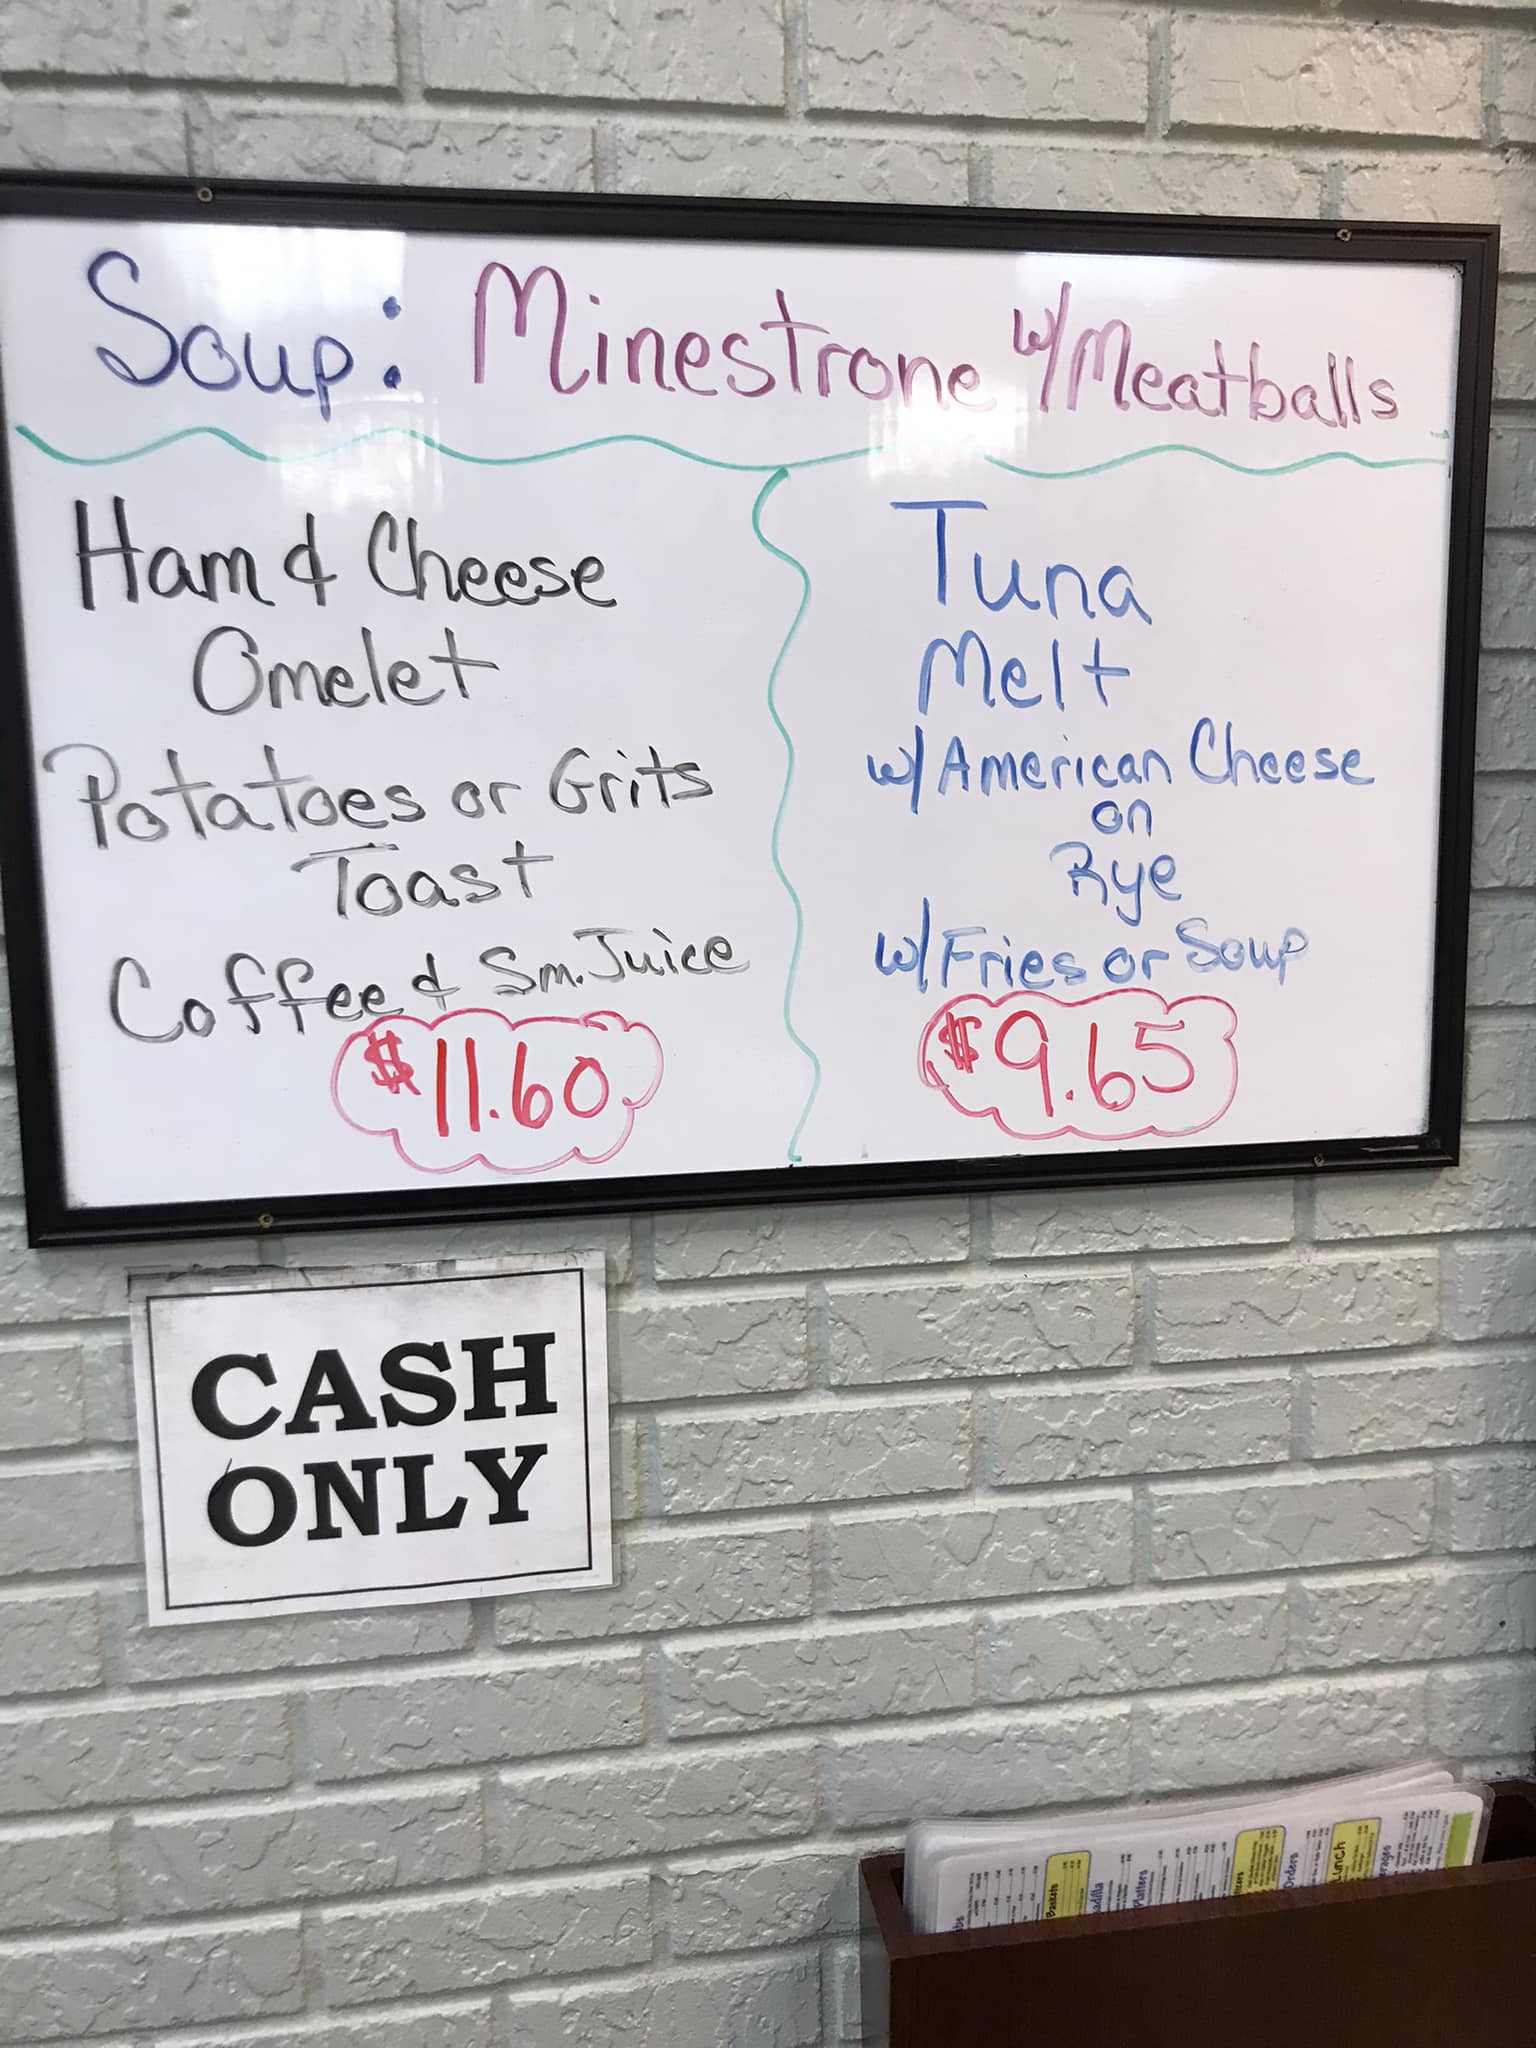 Soup: Minestrone w/Meatballs
Ham & Cheese
Omelet
Potatoes or Grits
Toast
Coffee & Sm. Juice
$11.60
Tuna
Melt
w/American Cheese
on
Rye
w/Fries or Soup
$9.65
CASH
ONLY
Baskets
Platters
Orders
Lunch